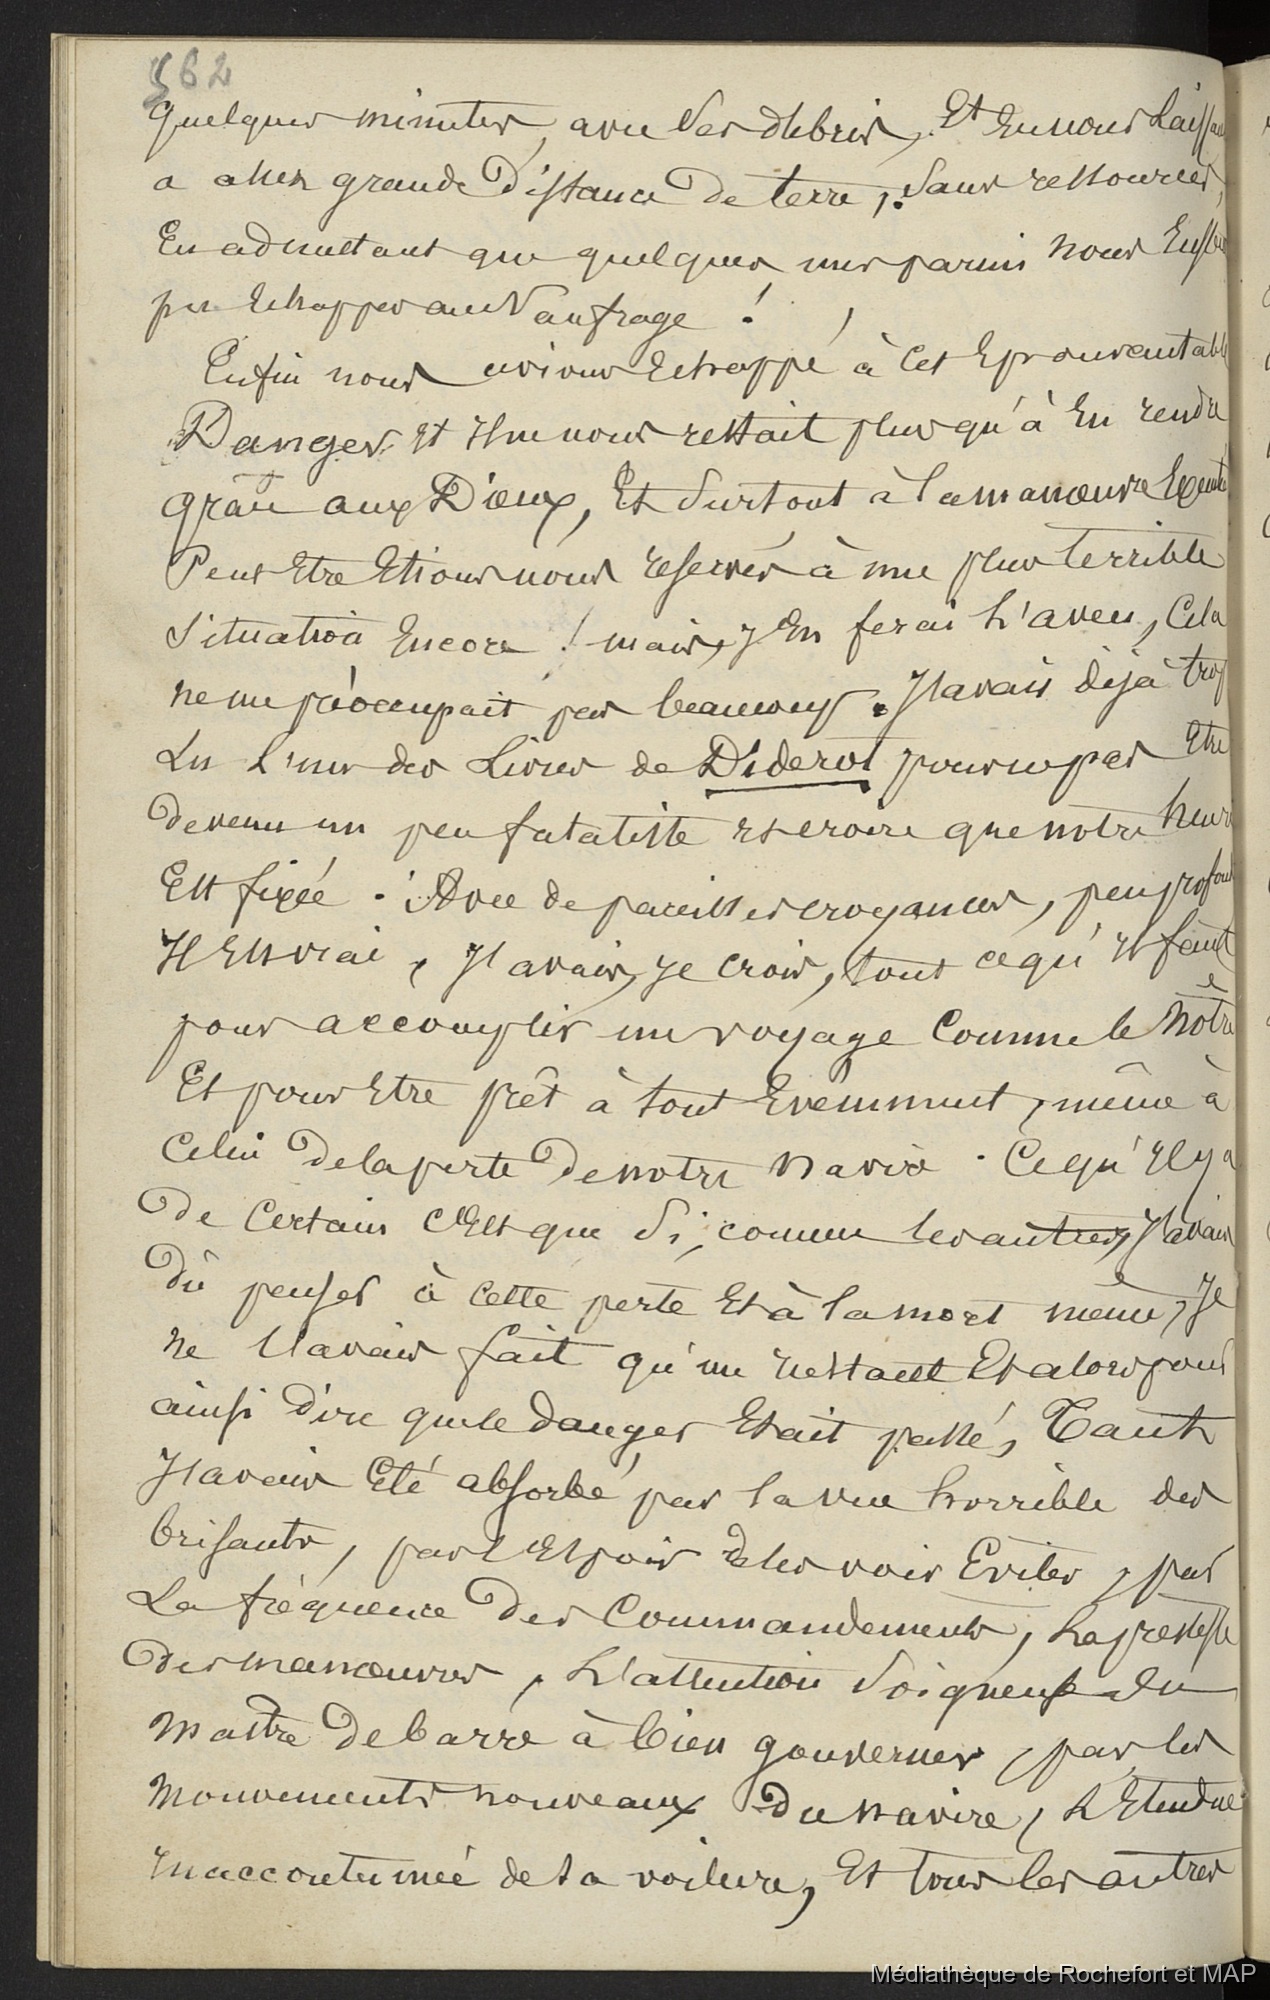 562
quelques minutes, avec ses debris, Et En nous laissant
a assez grande Distance De terre, sans ressources,
En admettant que quelques uns parmi nous Eussent
pu Echapper au Naufrage !
Enfin nous avions Echappé à Cet Epouvantable
Danger Et Il ne nous restait plus qu'à En rendre
grâce aux Dieux, Et surtout à la manœuvre
Peut Etre Etions nous reservés à une plus terrible
situation Encore ! mais, J'En ferai l'aveu, Cela
ne me préoccupait pas beaucoup. J'avais déjà trop
Lu l'un des Livres de Diderot pour ne pas Etre
Devenu un peu fataliste et croire que notre heure
Est fixée. Avec de pareilles croyances, peu profondes
Il Est vrai, J'avais, Je crois, tout ce qu'il faut
pour accomplir un voyage Comme le Nôtre
Et pour Etre prêt à tout Evènement, même à
Celui De la perte De notre navire. Ce qu'Il y a
De Certain C'Est que si, comme les autres, J'avais
Dû penser à cette perte Et à la mort même, Je
ne l'avais fait qu'un Instant Et alors pour
ainsi Dire que le Danger Etait passé, Tant
J'avais Eté absorbé par la vue horrible des
brisants, par l'Espoir de les voir Eviter, par
La fréquence Des Commandements, La prestesse
Des manœuvres, L'attention soigneuse du
maître De barre à bien gouverner, par les
mouvements nouveaux Du navire, L'Etendue
Inaccoutumée de sa voilure, Et tous les autres
Médiathèque de Rochefort et MAP